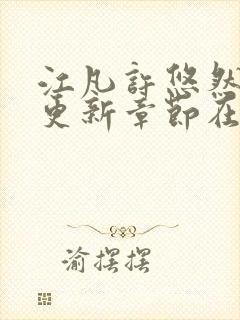 江凡许悠然
更新章节在
渝摆摆